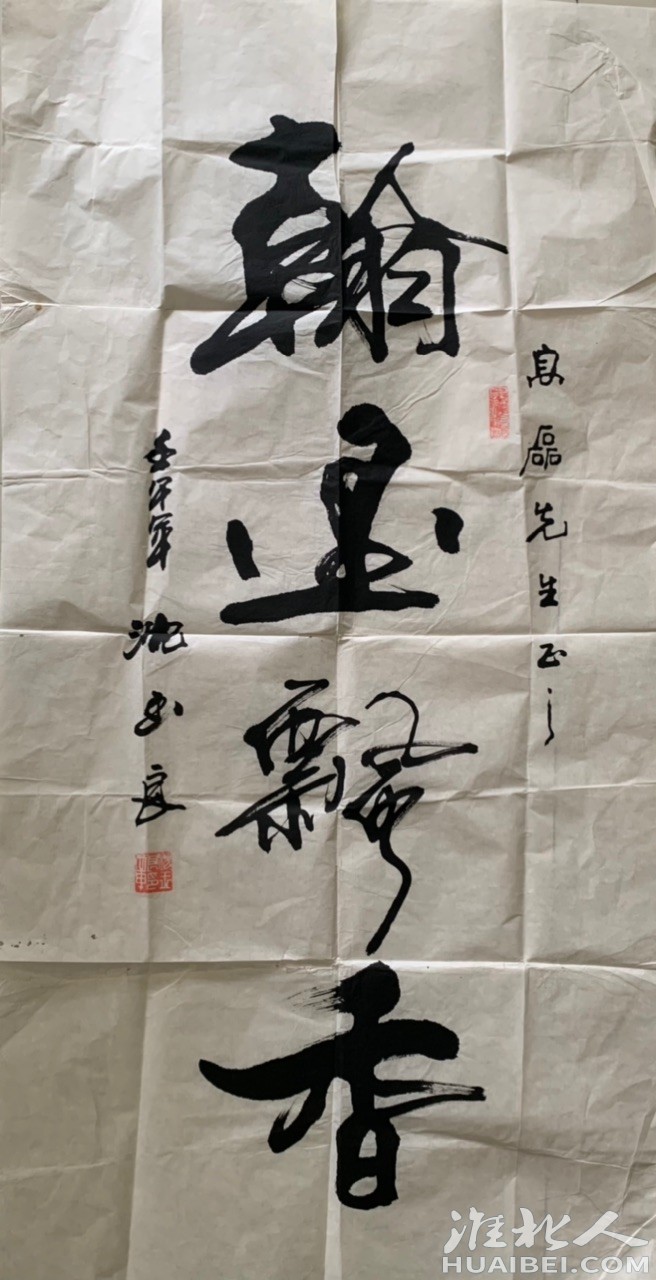 高磊先生正之
翰墨飘香
壬午年 沈玉良
淮北人
HUAIBEI.COM